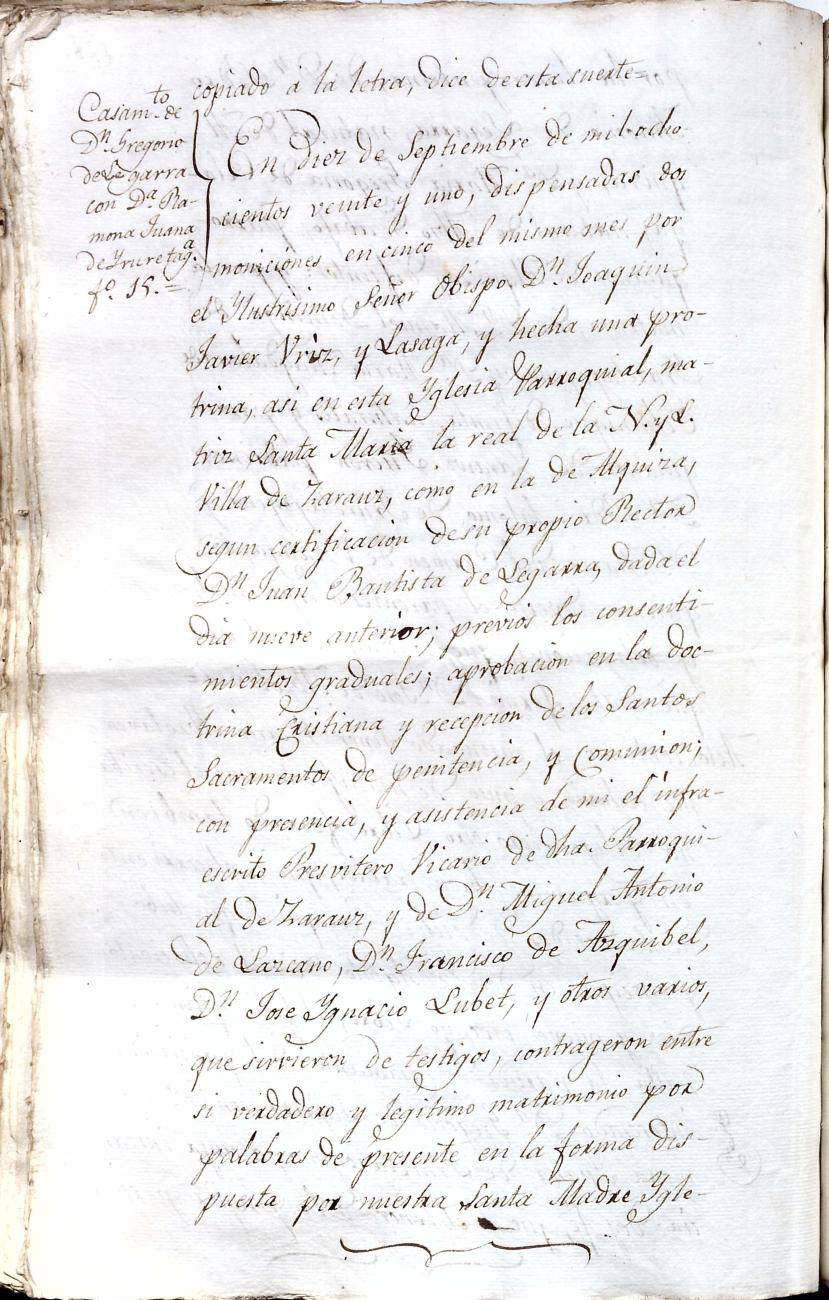 copiado á la letra, dice de esta suerte=
Casam.to de
Dn. Gregorio
de Legarra
con Da. Ra-
mona Juana
de Yruretaga.
fo. 15.=
En Diez de Septiembre de mil ocho-
cientos veinte y uno, dispensadas dos
moniciones en cinco del mismo mes por
el Ylustrisimo Señor Obispo Dn. Joaquin
Javier Vriz, y Lasaga, y hecha una pro-
trina, asi en esta Yglesia Parroquial, ma-
triz Santa Maria la real de la N. y L.
Villa de Zarauz, como en la de Alquiza,
segun certificacion de su propio Rector
Dn. Juan Bautista de Legarra, dada el
dia nueve anterior; previos los consenti-
mientos graduales; aprobacion en la doc-
trina Cristiana y recepcion de los Santos
Sacramentos de penitencia, y Comunion;
con presencia, y asistencia de mi el infra-
escrito Presvitero Vicario de dha. Parroqui-
al de Zarauz, y de Dn. Miguel Antonio
de Lazcano, Dn. Francisco de Azquibel,
Dn. Jose Ygnacio Lubet, y otros varios,
que sirvieron de testigos, contrageron entre
si verdadero y legitimo matrimonio por
palabras de presente en la forma dis-
puesta por nuestra Santa Madre Ygle-